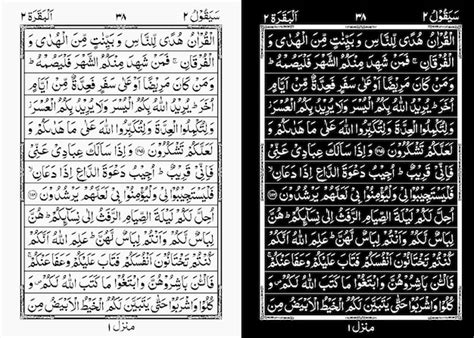 سَيَقُوْلُ ٢ ٣٨ اَلْبَقَرَة ٢
الْقُرْاٰنُ هُدًى لِّلنَّاسِ وَ بَيِّنٰتٍ مِّنَ الْهُدٰى وَ
الْفُرْقَانِ ۚ فَمَنْ شَهِدَ مِنْكُمُ الشَّهْرَ فَلْيَصُمْهُ ؕ
وَمَنْ كَانَ مَرِيْضًا اَوْ عَلٰى سَفَرٍ فَعِدَّةٌ مِّنْ اَيَّامٍ
اُخَرَ ؕ يُرِيْدُ اللّٰهُ بِكُمُ الْيُسْرَ وَلَا يُرِيْدُ بِكُمُ الْعُسْرَ ؗ
وَلِتُكْمِلُوا الْعِدَّةَ وَلِتُكَبِّرُوا اللّٰهَ عَلٰى مَا هَدٰىكُمْ وَ
لَعَلَّكُمْ تَشْكُرُوْنَ ﴿۱۸۵﴾ وَ اِذَا سَاَلَكَ عِبَادِيْ عَنِّيْ
فَاِنِّيْ قَرِيْبٌ ؕ اُجِيْبُ دَعْوَةَ الدَّاعِ اِذَا دَعَانِ ۙ
فَلْيَسْتَجِيْبُوْا لِيْ وَلْيُؤْمِنُوْا بِيْ لَعَلَّهُمْ يَرْشُدُوْنَ ﴿۱۸۶﴾
اُحِلَّ لَكُمْ لَيْلَةَ الصِّيَامِ الرَّفَثُ اِلٰى نِسَآئِكُمْ ؕ هُنَّ
لِبَاسٌ لَّكُمْ وَاَنْتُمْ لِبَاسٌ لَّهُنَّ ؕ عَلِمَ اللّٰهُ اَنَّكُمْ
كُنْتُمْ تَخْتَانُوْنَ اَنْفُسَكُمْ فَتَابَ عَلَيْكُمْ وَعَفَا عَنْكُمْ ۚ
فَالْـٰٔنَ بَاشِرُوْهُنَّ وَابْتَغُوْا مَا كَتَبَ اللّٰهُ لَكُمْ ۪ وَ
كُلُوْا وَاشْرَبُوْا حَتّٰى يَتَبَيَّنَ لَكُمُ الْخَيْطُ الْاَبْيَضُ مِنَ
منزل ١
سَيَقُوْلُ ٢ ٣٨ اَلْبَقَرَة ٢
الْقُرْاٰنُ هُدًى لِّلنَّاسِ وَ بَيِّنٰتٍ مِّنَ الْهُدٰى وَ
الْفُرْقَانِ ۚ فَمَنْ شَهِدَ مِنْكُمُ الشَّهْرَ فَلْيَصُمْهُ ؕ
وَمَنْ كَانَ مَرِيْضًا اَوْ عَلٰى سَفَرٍ فَعِدَّةٌ مِّنْ اَيَّامٍ
اُخَرَ ؕ يُرِيْدُ اللّٰهُ بِكُمُ الْيُسْرَ وَلَا يُرِيْدُ بِكُمُ الْعُسْرَ ؗ
وَلِتُكْمِلُوا الْعِدَّةَ وَلِتُكَبِّرُوا اللّٰهَ عَلٰى مَا هَدٰىكُمْ وَ
لَعَلَّكُمْ تَشْكُرُوْنَ ﴿۱۸۵﴾ وَ اِذَا سَاَلَكَ عِبَادِيْ عَنِّيْ
فَاِنِّيْ قَرِيْبٌ ؕ اُجِيْبُ دَعْوَةَ الدَّاعِ اِذَا دَعَانِ ۙ
فَلْيَسْتَجِيْبُوْا لِيْ وَلْيُؤْمِنُوْا بِيْ لَعَلَّهُمْ يَرْشُدُوْنَ ﴿۱۸۶﴾
اُحِلَّ لَكُمْ لَيْلَةَ الصِّيَامِ الرَّفَثُ اِلٰى نِسَآئِكُمْ ؕ هُنَّ
لِبَاسٌ لَّكُمْ وَاَنْتُمْ لِبَاسٌ لَّهُنَّ ؕ عَلِمَ اللّٰهُ اَنَّكُمْ
كُنْتُمْ تَخْتَانُوْنَ اَنْفُسَكُمْ فَتَابَ عَلَيْكُمْ وَعَفَا عَنْكُمْ ۚ
فَالْـٰٔنَ بَاشِرُوْهُنَّ وَابْتَغُوْا مَا كَتَبَ اللّٰهُ لَكُمْ ۪ وَ
كُلُوْا وَاشْرَبُوْا حَتّٰى يَتَبَيَّنَ لَكُمُ الْخَيْطُ الْاَبْيَضُ مِنَ
منزل ١